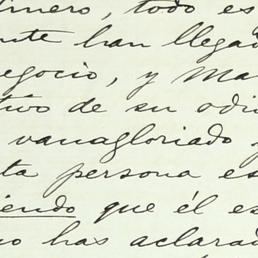 dinero, todo es
nte han llegad
egocio, y Ma
tivo de su odi
vanagloriado y
ta persona es
iendo que él es
no has aclarad